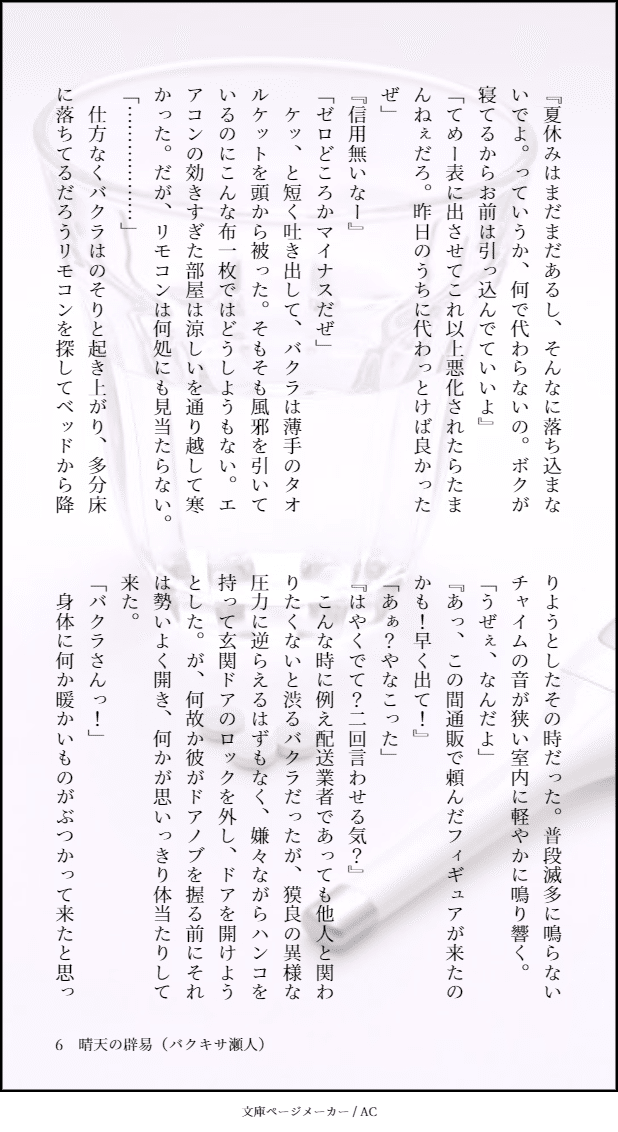 『夏休みはまだまだあるし、そんなに落ち込まな
いでよ。っていうか、何で代わらないの。ボクが
寝てるからお前は引っ込んでていいよ』
「てめー表に出させてこれ以上悪化されたらたま
んねぇだろ。昨日のうちに代わっとけば良かった
ぜ」
『信用無いなー』
「ゼロどころかマイナスだぜ」
　ケッ、と短く吐き出して、バクラは薄手のタオ
ルケットを頭から被った。そもそも風邪を引いて
いるのにこんな布一枚ではどうしようもない。エ
アコンの効きすぎた部屋は涼しいを通り越して寒
かった。だが、リモコンは何処にも見当たらない。
「………………」
　仕方なくバクラはのそりと起き上がり、多分床
に落ちてるだろうリモコンを探してベッドから降
りようとしたその時だった。普段滅多に鳴らない
チャイムの音が狭い室内に軽やかに鳴り響く。
「うぜぇ、なんだよ」
『あっ、この間通販で頼んだフィギュアが来たの
かも！早く出て！』
「あぁ？やなこった」
『はやくでて？二回言わせる気？』
　こんな時に例え配送業者であっても他人と関わ
りたくないと渋るバクラだったが、獏良の異様な
圧力に逆らえるはずもなく、嫌々ながらハンコを
持って玄関ドアのロックを外し、ドアを開けよう
とした。が、何故か彼がドアノブを握る前にそれ
は勢いよく開き、何かが思いっきり体当たりして
来た。
「バクラさんっ！」
　身体に何か暖かいものがぶつかって来たと思っ
6　晴天の辟易（バクキサ瀬人）
文庫ページメーカー / AC